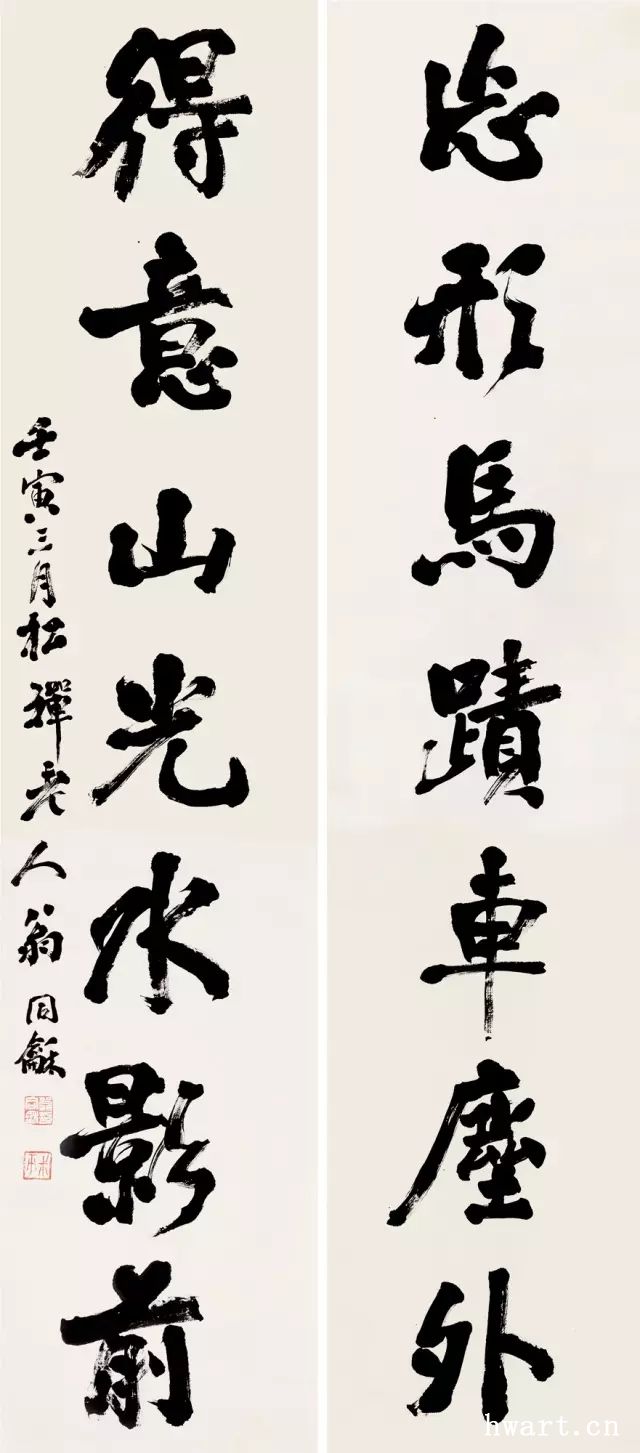 忘形馬蹟車塵外
得意山光水影前
壬寅三月松禪老人翁同龢
hwart.cn